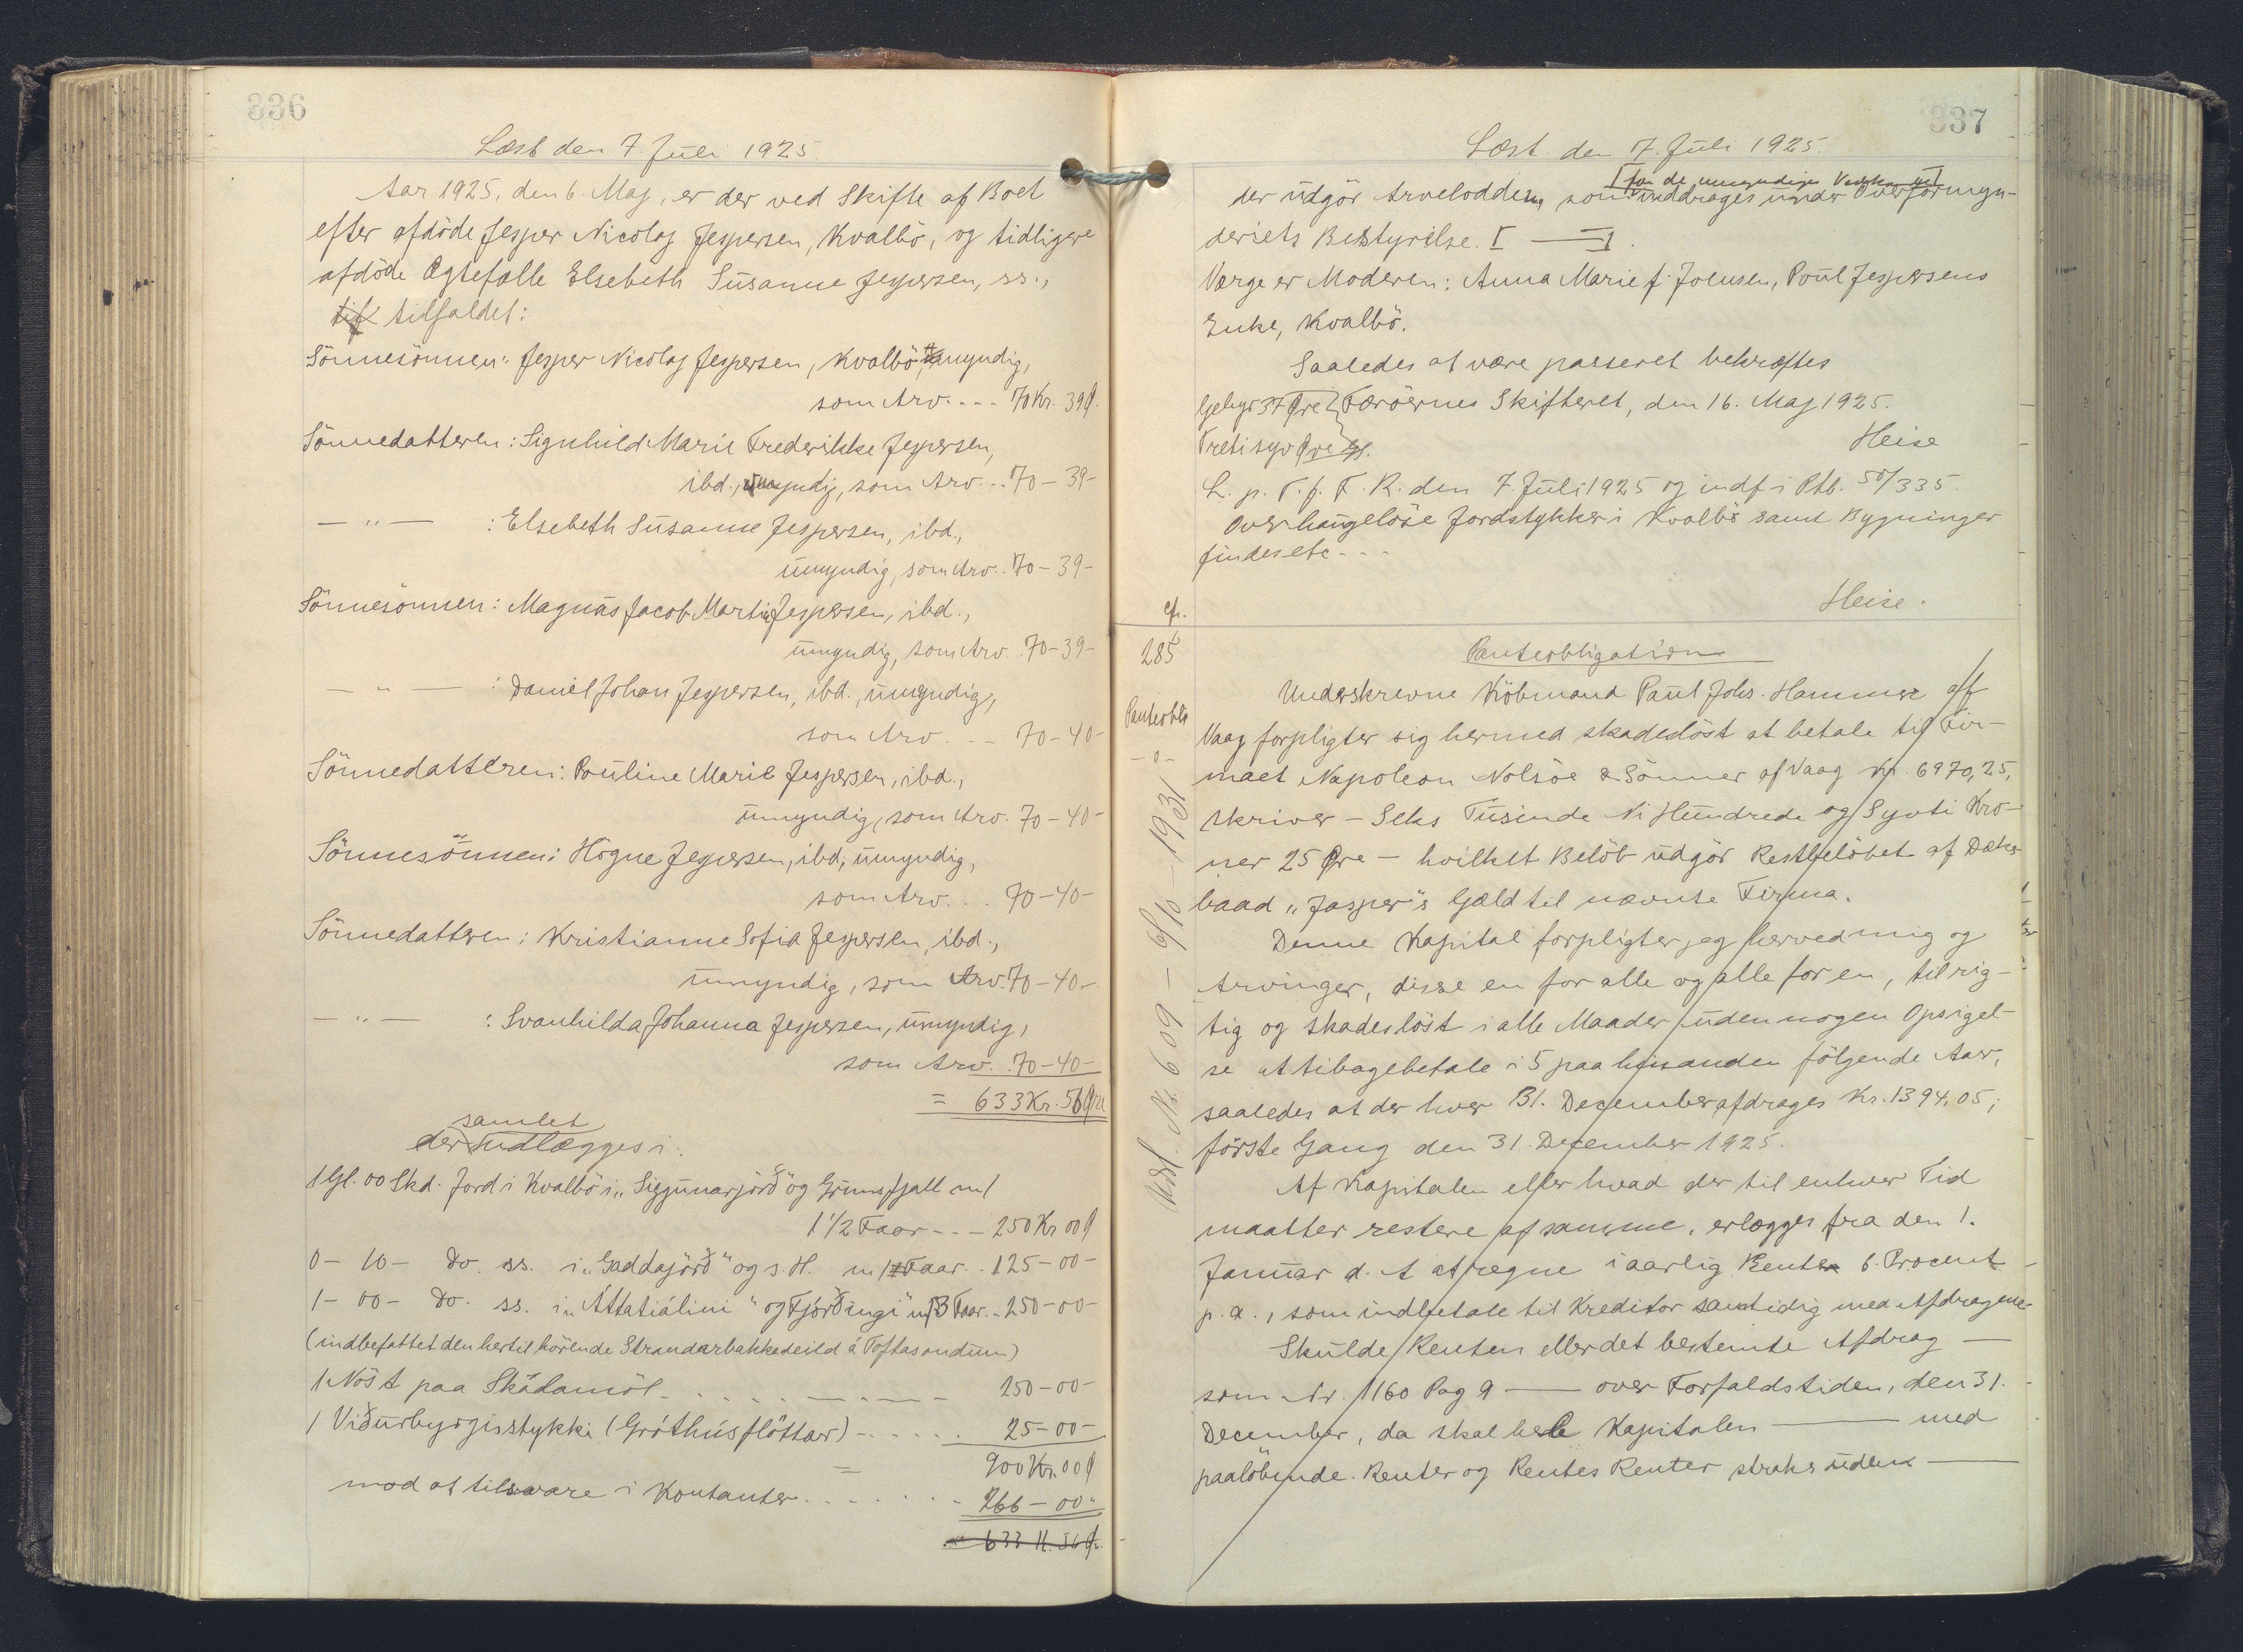 336
Læst den 7. Juli 1925
Aar 1925, den 6. Maj, er der ved Skifte af Boet
efter afdöde Jesper Nicolaj Jespersen, Kvalbö, og tidligere
afdöde Ægtefælle Elsebeth Susanne Jespersen, ss.,
til tilfaldet:
Sönnesönnen: Jesper Nicolaj Jespersen, Kvalbö, umyndig,
som Arv. - - - 70 Kr. 39 Ø.
Sönnedatteren: Signhild Marie Frederikke Jespersen,
ibd., umyndig, som Arv. - - 70 - 39 -
— " — : Elsebeth Susanne Jespersen, ibd.,
umyndig, som Arv. . 70 - 39 -
Sönnesönnen: Magnus Jacob Martin Jespersen, ibd.,
umyndig, som Arv. 70 - 39 -
— " — : Daniel Johan Jespersen, ibd., umyndig,
som Arv. - - 70 - 40 -
Sönnedatteren: Pouline Marie Jespersen, ibd.,
umyndig, som Arv. 70 - 40 -
Sönnesönnen: Högne Jespersen, ibd., umyndig,
som Arv. . . 70 - 40 -
Sönnedatteren: Kristianne Sofia Jespersen, ibd.,
umyndig, som Arv. 70 - 40 -
— " — : Svanhilda Johanna Jespersen, umyndig,
som Arv. . 70 - 40 -
= 633 Kr. 56 Øre
samlet
der udlægges i:
1 Gl. 00 Skd. Jord i Kvalbö i „Siggunarjörð" og Grimsfjall m/
1 1/2 Faar - - - 250 Kr 00 Ø
0 - 10 - Do. ss. i „Gaddajörð" og s. H. m/ Faar. . 125 - 00 -
1 - 00 - Do. ss. i „Áttatiálini" og Fjórðingi" m/3 Faar. - 250 - 00 -
(indbefattet den hertil hörende Strandarbakkadeild á Toftasondum)
1 Nöst paa Skádamöl - . . . . - . - . - 250 - 00 -
1 Viðurbygjisstykki (Gróthúsflöttar) - . . . . . 25 - 00 -
= 900 Kr. 00 Ø
mod at tilsvare i Kontanter. . . . . . . - 266 - 00 "
633 K. 56 Ø.
337
Læst den 7. Juli 1925.
[for de umyndiges Vedkommende]
der udgör Arvelodden, som inddrages under Overformyn-
deriets Bestyrelse. [ — ].
Værge er Moderen: Anna Marie f. Joensen, Poul Jespersens
Enke, Kvalbö.
Saaledes at være passeret bekræftes
Gebyr 37 Øre } Færöernes Skifteret, den 16. Maj 1925.
Tretisyv Øre
Heise
L. p. T. f. F. R. den 7. Juli 1925 og indf. i Ptb. 50/335.
Overhaugelöse Jordstykker i Kvalbö samt Bygninger
findes etc - - -
Heise.
cfr.
285
Panteobl.
- 0 -
Udsl. Nr. 609 - 6/10 - 1931
Panteobligation
Underskrevne Köbmand Paul Johs. Hammer af
Vaag forpligter sig hermed skadeslöst at betale til Fir-
maet Napoleon Nolsöe & Sönner af Vaag Kr. 6970,25,
skriver - Seks Tusinde Ni Hundrede og Syvti Kro-
ner 25 Øre - hvilket Belöb udgör Restbelöbet af Dæks-
baad „Jasper"s Gæld til nævnte Firma.
Denne Kapital forpligter jeg herved mig og
Arvinger, disse en for alle og alle for en, til rig-
tig og skadeslöst i alle Maader uden nogen Opsigel-
se at tibagebetale i 5 paa hinanden fölgende Aar,
saaledes at der hver 31. December afdrages Kr. 1394,05;
förste Gang den 31. December 1925.
Af Kapitalen eller hvad der til enhver Tid
maatter restere af samme, erlægges fra den 1.
Januar d. A at regne i aarlig Rente 6. Procent
p. a., som indbetale til Kreditor samtidig med Afdragene.
Skulde Renten eller det bestemte Afdrag —
som Nr. 1160 Pag 9 — over Forfaldstiden, den 31.
December, da skal hele Kapitalen — med
paalöbende Renter og Rentes Renter straks uden —